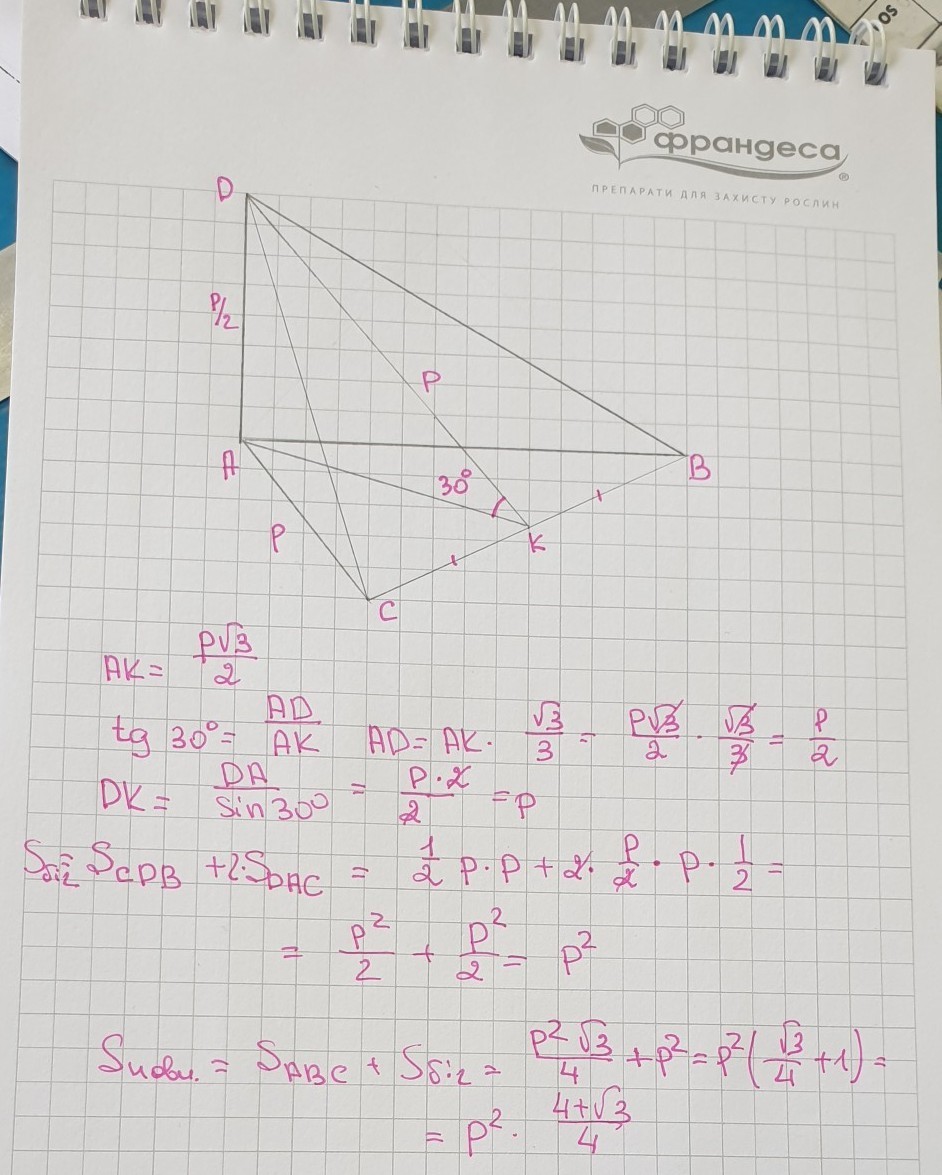 os
франдеса®
ПРЕПАРАТИ ДЛЯ ЗАХИСТУ РОСЛИН
D
P/2
P
A
B
30°
K
P
C
AK = P√3/2
tg 30° = AD/AK AD = AK · √3/3 = P√3/2 · √3/3 = P/2
DK = DA/sin30° = P·2/2 = P
Sбіг = SCDB + 2·SDAC = 1/2 P·P + 2·P/2 · P · 1/2 =
= P²/2 + P²/2 = P²
Sповн. = SABC + Sбіг = P²√3/4 + P² = P²(√3/4 + 1) =
= P² · 4+√3/4